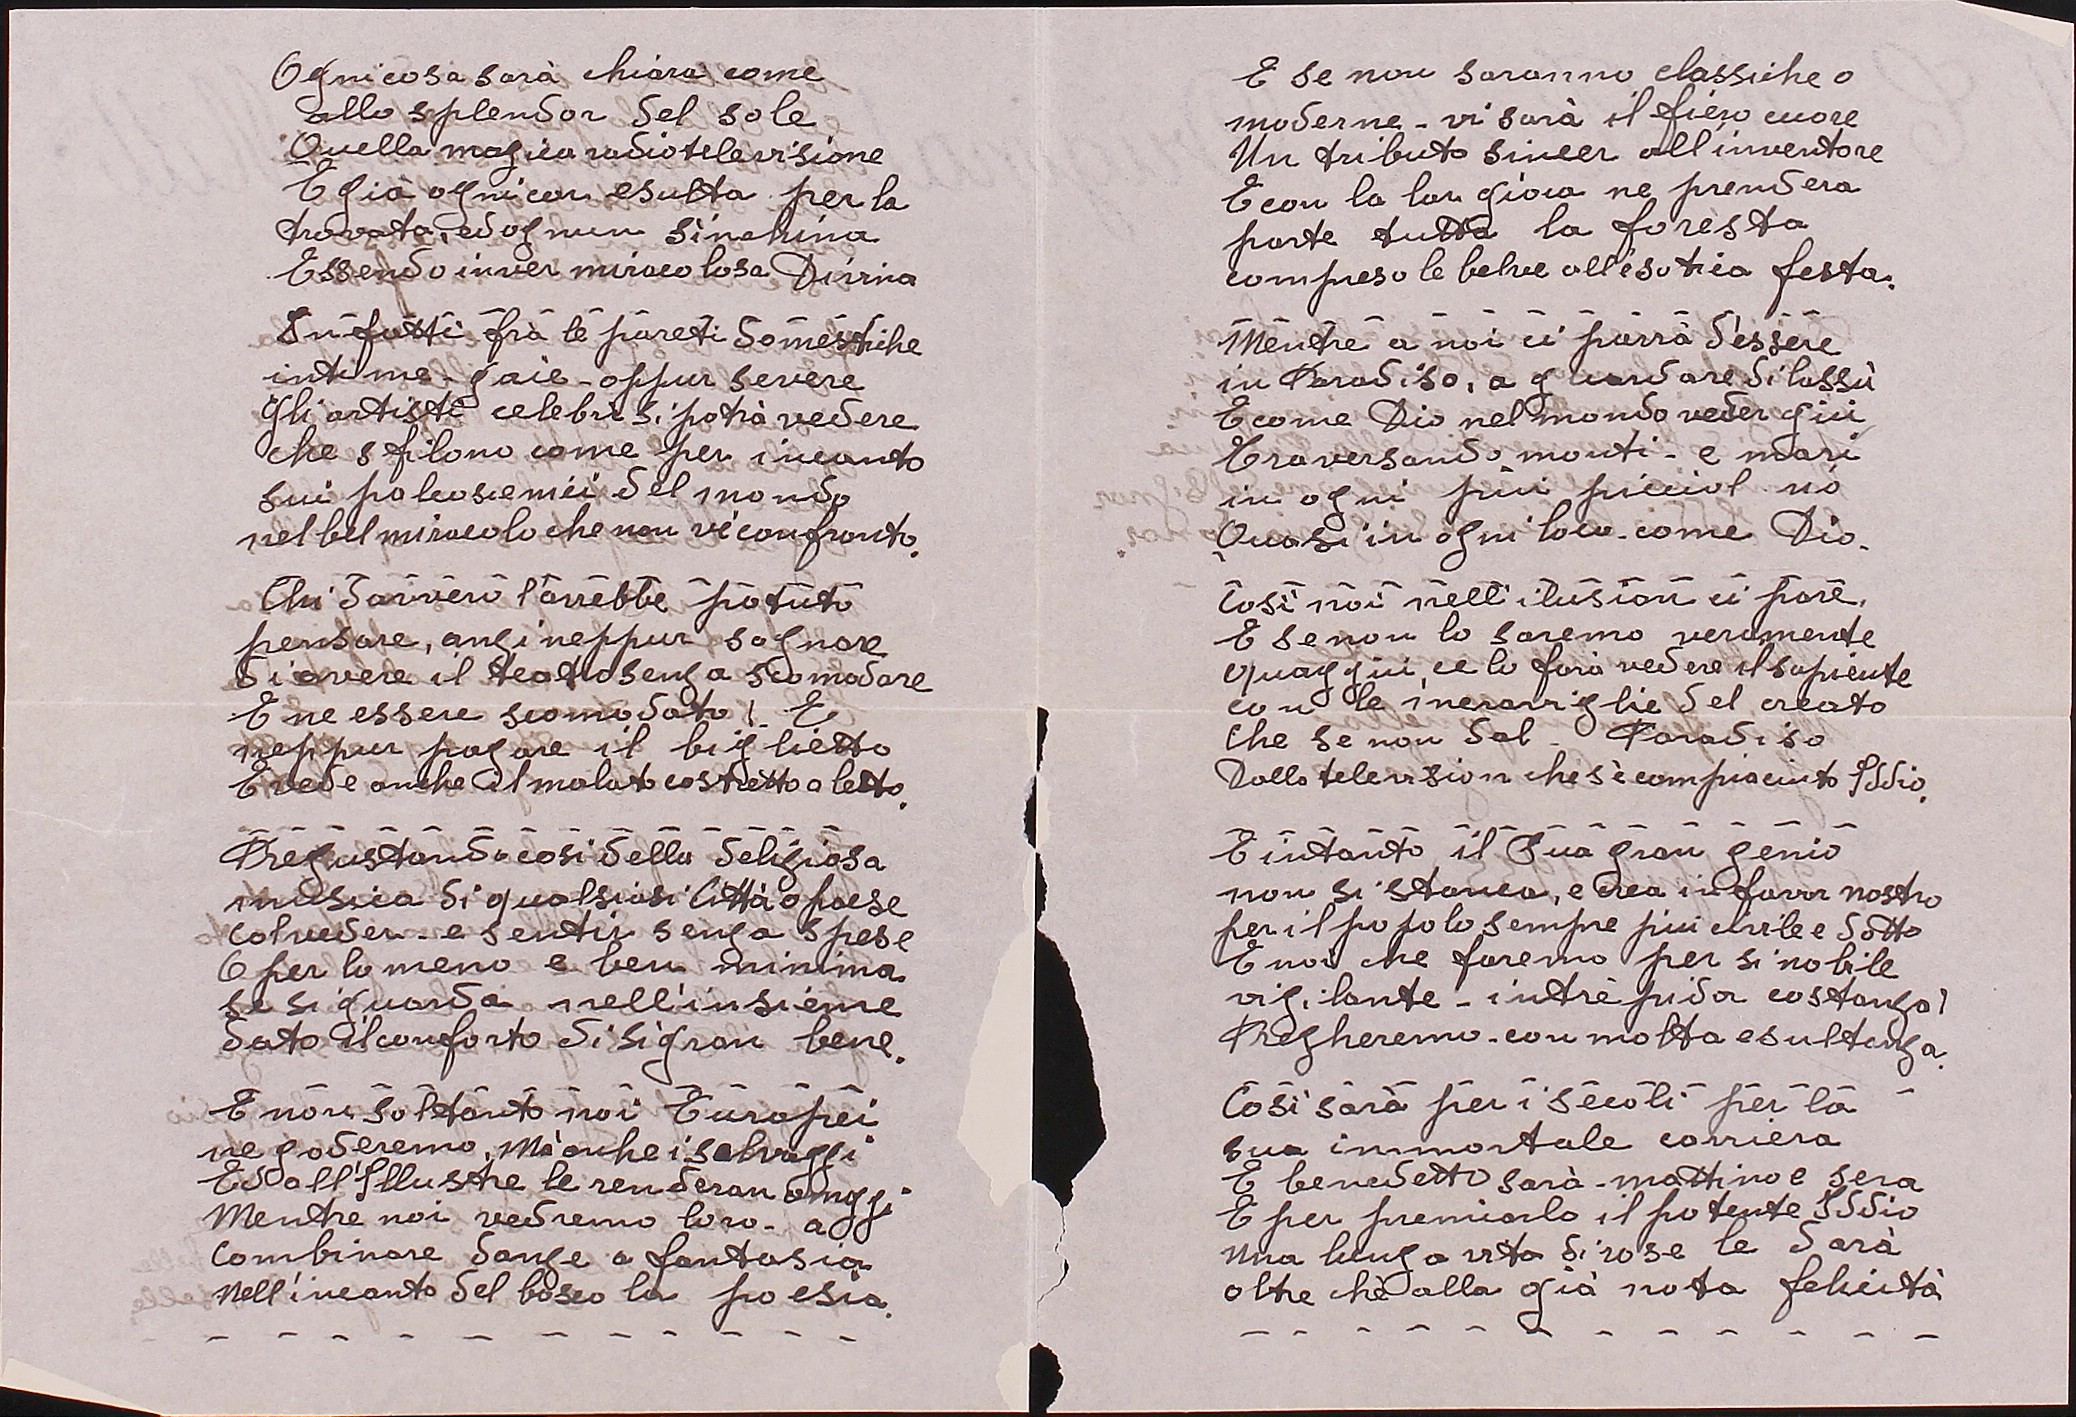 Ogni cosa sarà chiara come
allo splendor del sole
Quella magica radiotelevisione
E già ogni cor esulta per la
trovata, ed ognun s'inchina
Essendo inver miracolosa Divina
Infatti frà le pareti domestiche
intime - gaie - oppur severe
Gli artisti celebri si potrà vedere
che sfilono come per incanto
sui palcoscenici del mondo
nel bel miracolo che non v'è confronto.
Chi davvero l'avrebbe potuto
pensare, anzi neppur sognare
di avere il teatro senza scomodare
E ne essere scomodato! E
neppur pagare il biglietto
E vede anche il malato costretto a letto.
Pregustando così della deliziosa
musica di qualsiasi Città o paese
Col veder - e sentir senza spese
O per lo meno e ben minima
se si guarda nell'insieme
dato il conforto di sì gran bene.
E non soltanto noi Europei
ne goderemo, Mà anche i selvaggi
Ed all'Illustre le renderan omaggi
Mentre noi vedremo loro - a
Combinare danze a fantasia
Nell'incanto del bosco la poesia.
E se non saranno classiche o
moderne - vi sarà il fiero cuore
Un tributo sincer all'inventore
E con la lor gioia ne prenderà
parte tutta la foresta
compreso le belve all'esotica festa.
Mentre a noi ci parrà d'essere
in Paradiso, a guardare di lassù
E come Dio nel mondo veder giù
Traversando monti - e mari
in ogni più picciol rio
Quasi in ogni loco - come Dio.
Così noi nell'ilusion ci pare,
E se non lo saremo veramente
quaggiù, ce lo farà vedere il sapiente
con le meraviglie del creato
Che se non dal - Paradiso
Dalla television che s'è compiaciuto Iddio.
E intanto il Suo gran genio
non si stanca, e crea in favor nostro
per il popolo sempre più civile e dotto
E noi che faremo per sì nobile
vigilante - intrepidor costanza?
Pregheremo - con molta esultanza.
Così sarà per i secoli per la
sua immortale carriera
E benedetto sarà - mattino e sera
E per premiarlo il potente Iddio
una lunga vita di rose le darà
oltre chè alla già nota felicità